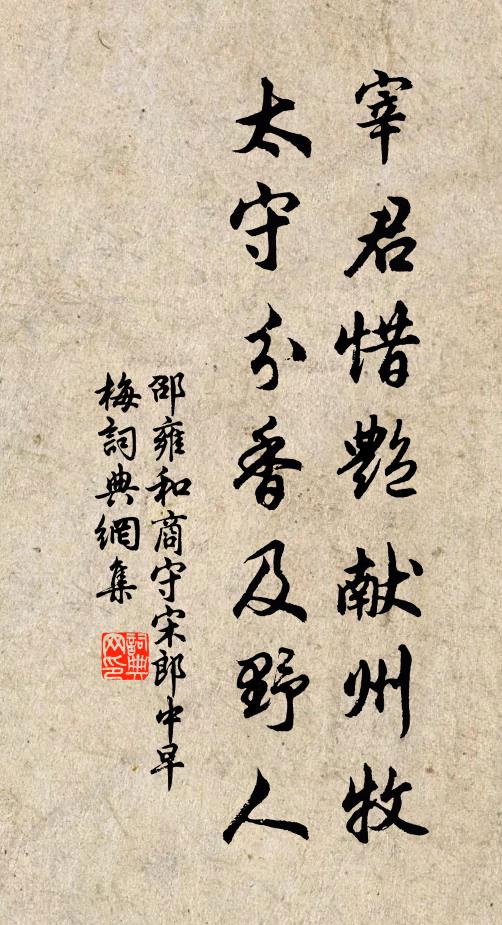 宰君惜艷献州牧
太守分香及野人
邵雍和商守宋郎中早
梅詞典網集
詞典网印